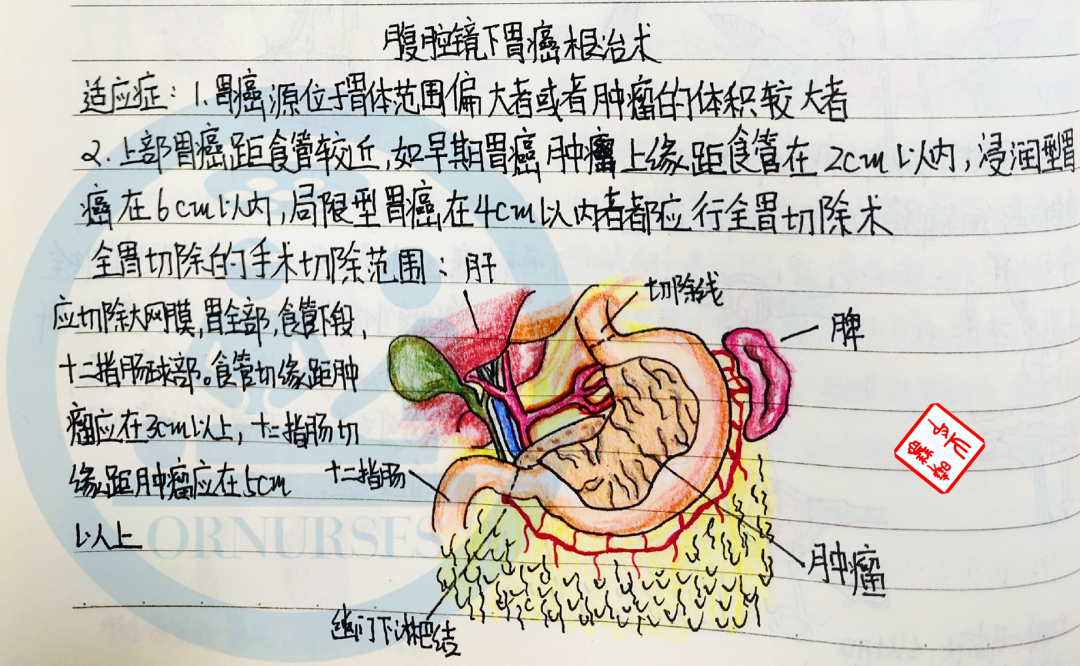 腹腔镜下胃癌根治术
适应症：1.胃癌源位于胃体范围偏大者或者肿瘤的体积较大者
2.上部胃癌距食管较近，如早期胃癌肿瘤上缘距食管在2cm以内，浸润型胃
癌在6cm以内，局限型胃癌在4cm以内者都应行全胃切除术
全胃切除的手术切除范围：
肝
切除线
应切除大网膜，胃全部，食管下段，
脾
十二指肠球部。食管切缘距肿
瘤应在3cm以上，十二指肠切
缘距肿瘤应在5cm
十二指肠
以上
ORNURSES
肿瘤
幽门下淋巴结